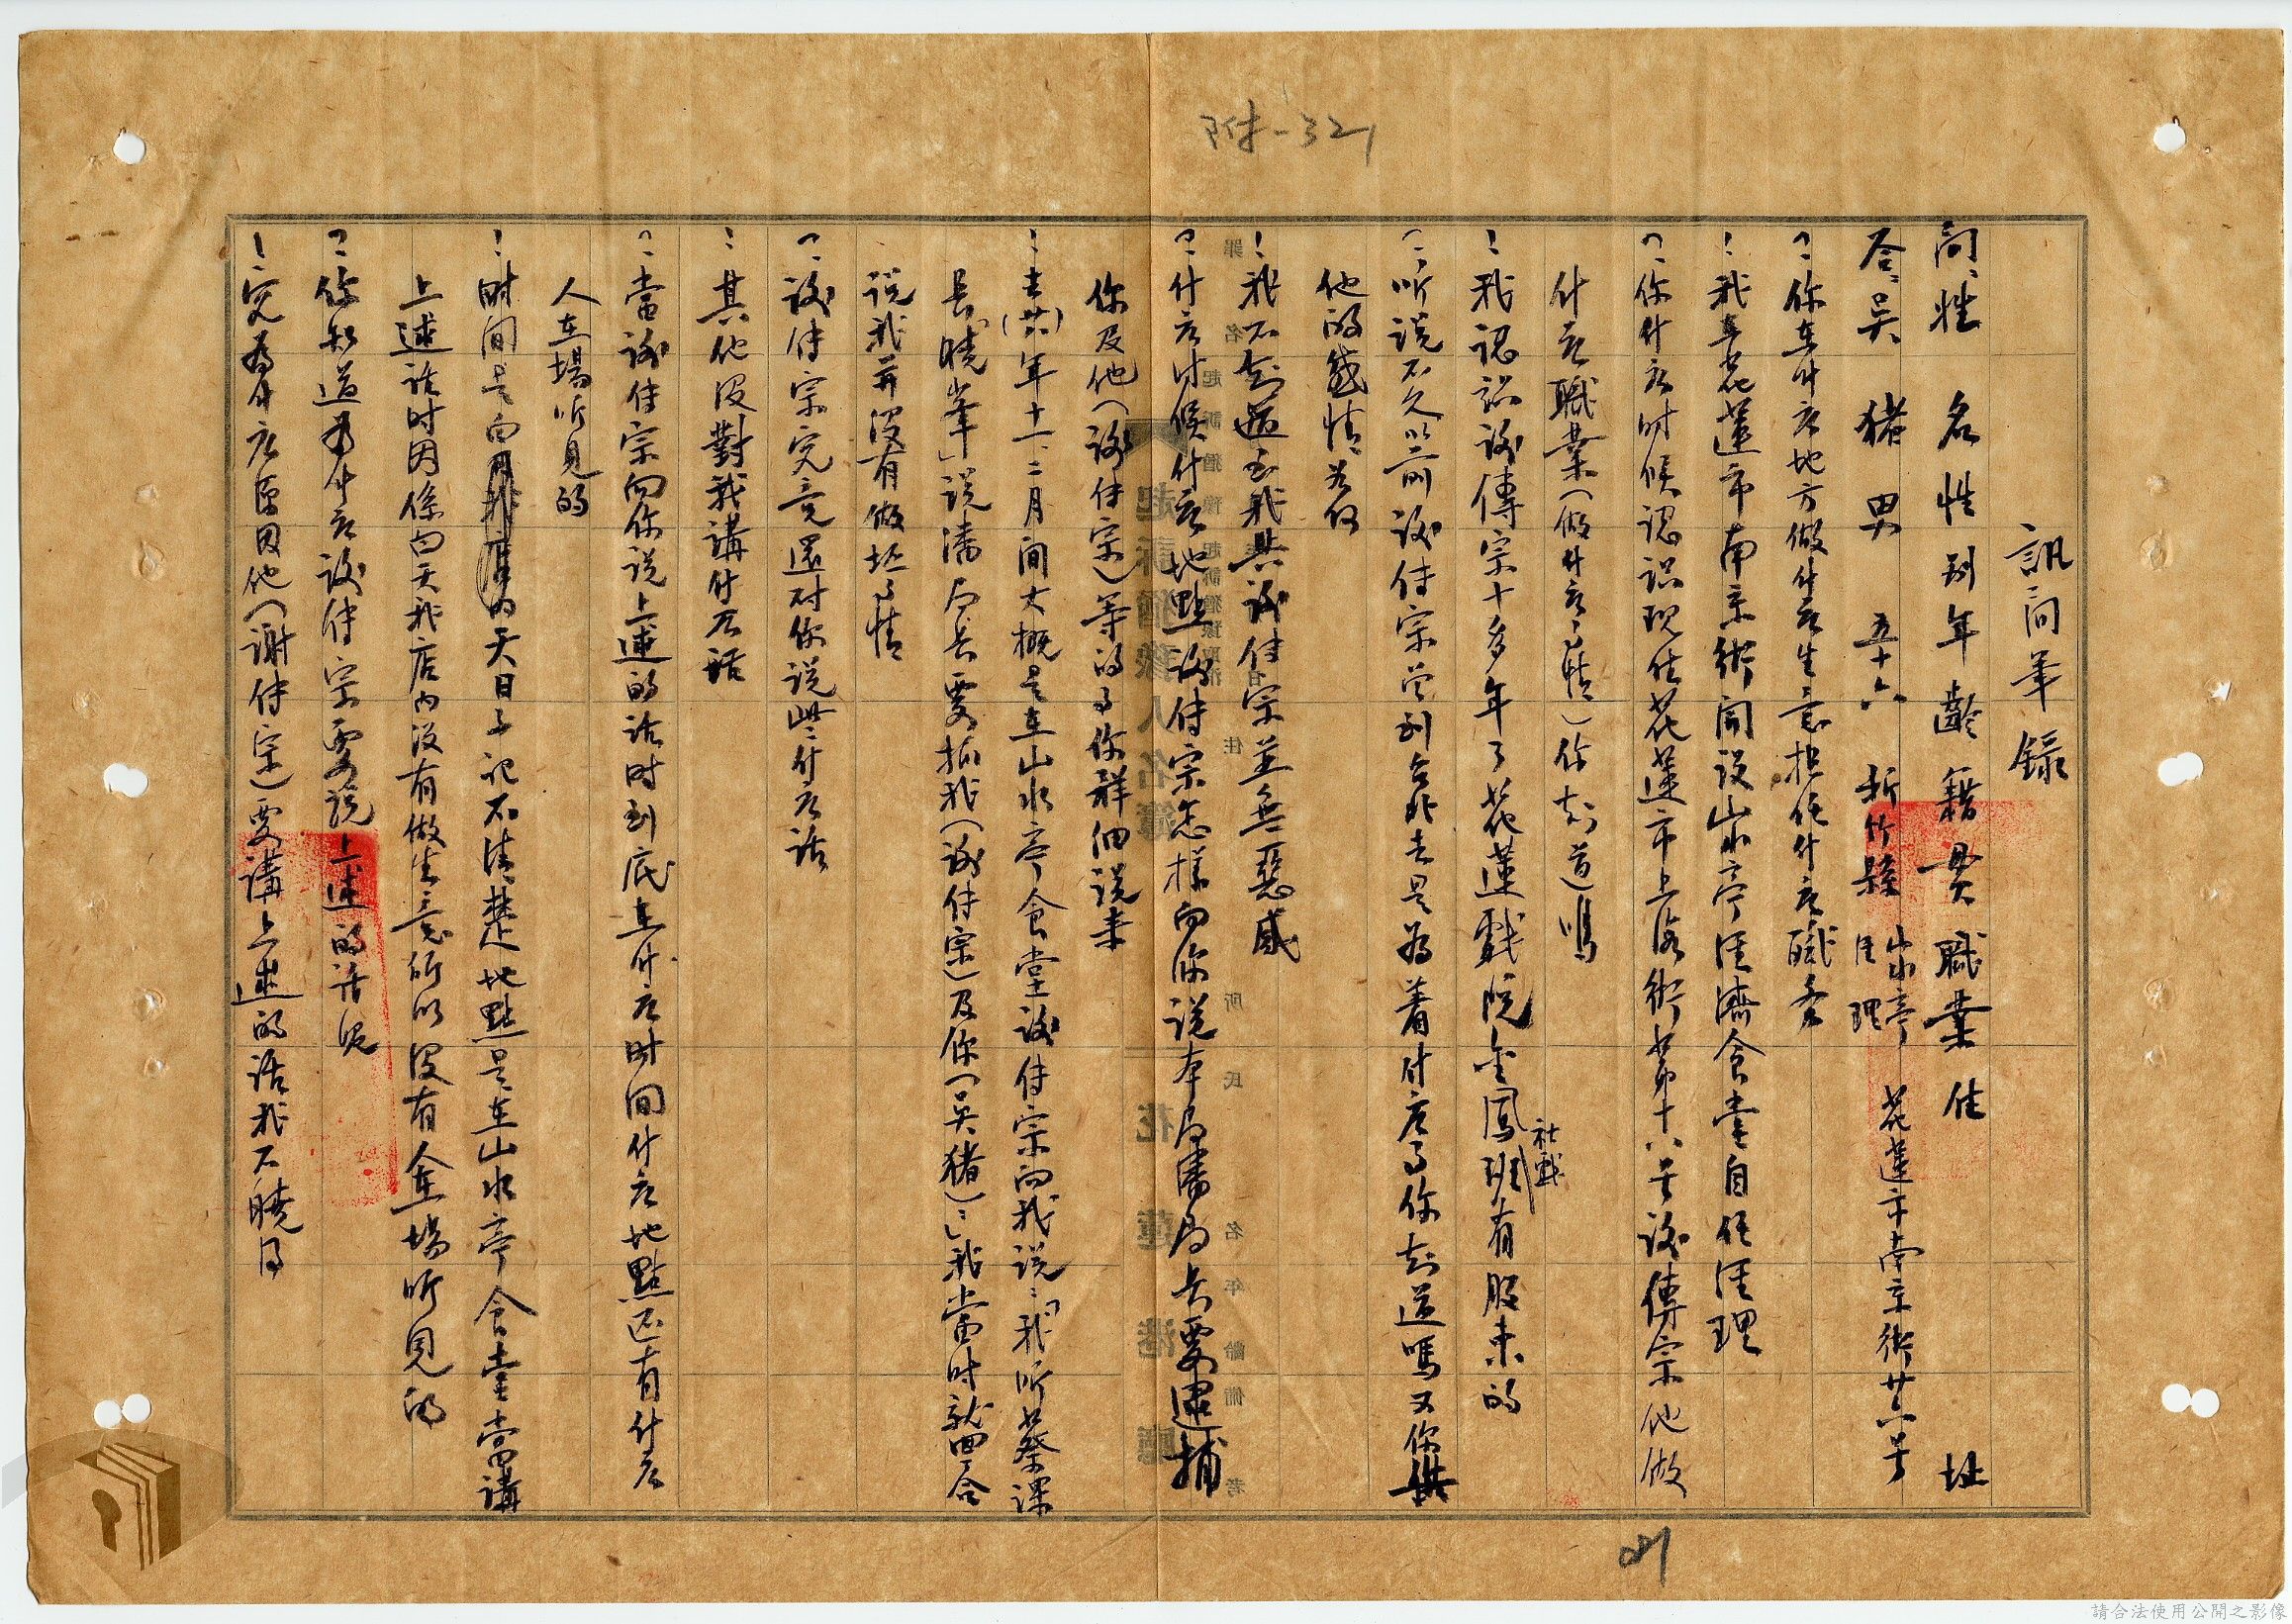 附-321
訊問筆錄
問、姓名性別年齡籍貫職業住址
答、吳猪 男 五十六 新竹縣 山水亭経理 花蓮市南京街廿六号
？、你在什麼地方做什麼生意担任什麼職務
！我在花蓮市南京街開設山水亭経濟食堂自任経理
？、你什麼时候認识現住花蓮市上海街第十八号謝傳宗他做
什麼職業（做什麼事情）你知道嗎
！我認識謝傳宗十多年了花蓮戲院金鳳社戲班有股東的
？、听说不久以前謝傳宗曾到台北去是為着什麼事你知道嗎又你與
他的感情若何
！我不知道至我與謝傳宗並無惡感
？、什麼时候什麼地點謝傳宗怎樣向你说本局潘局長要逮捕
你及他（謝傳宗）等的事你詳细说来
！去（卅六）年十一、二月間大概是在山水亭食堂謝傳宗向我说：「我听蔡課
長曉峯」说潘局長要抓我（謝傳宗）及你（吳猪）」我當时就回答
说我并没有做坯事情
？、謝傳宗究竟還对你说些什麼话
！其他没對我講什麼話
？、當謝傳宗向你说上述的话时到底在什麼时间什麼地點还有什麼
人在場听見的
！时间是白天日子记不清楚地點是在山水亭食堂當講
上述话时因係白天我店内没有做生意所以没有人在場听見的
？、你知道為什麼謝傳宗要说上述的话呢
！究為什麼原因他（謝傳宗）要講上述的话我不曉得
21
請合法使用公開之影像